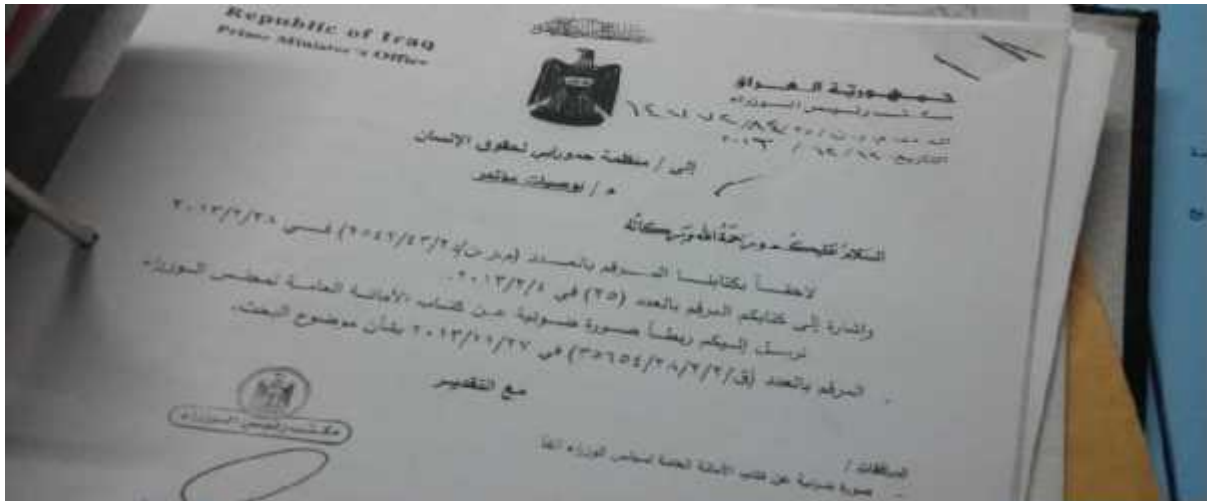 Republic of Iraq
Prime Minister's Office
جمهورية العراق
مكتب رئيس الوزراء
التاريخ
إلى / منظمة حمورابي لحقوق الإنسان
م / توصيات مؤتمر
السلام عليكم ورحمة الله وبركاته
لاحقاً بكتابنا المرقم بالعدد (م.ر.ن/د٢٥٤٢/٤٣/٢) في ٢٠١٣/٢/٢٨
وإشارة إلى كتابكم المرقم بالعدد (٢٥) في ٢٠١٣/٢/٤.
نرسل إليكم ربطاً صورة ضوئية عن كتاب الأمانة العامة لمجلس الوزراء
المرقم بالعدد (ق/٣٥٦٥٤/٢٨/٢/٢) في ٢٠١٣/١١/٢٧ بشأن موضوع البحث.
مع التقدير
مكتب رئيس الوزراء
المرافقات /
- صورة ضوئية عن كتاب الأمانة العامة لمجلس الوزراء آنفاً